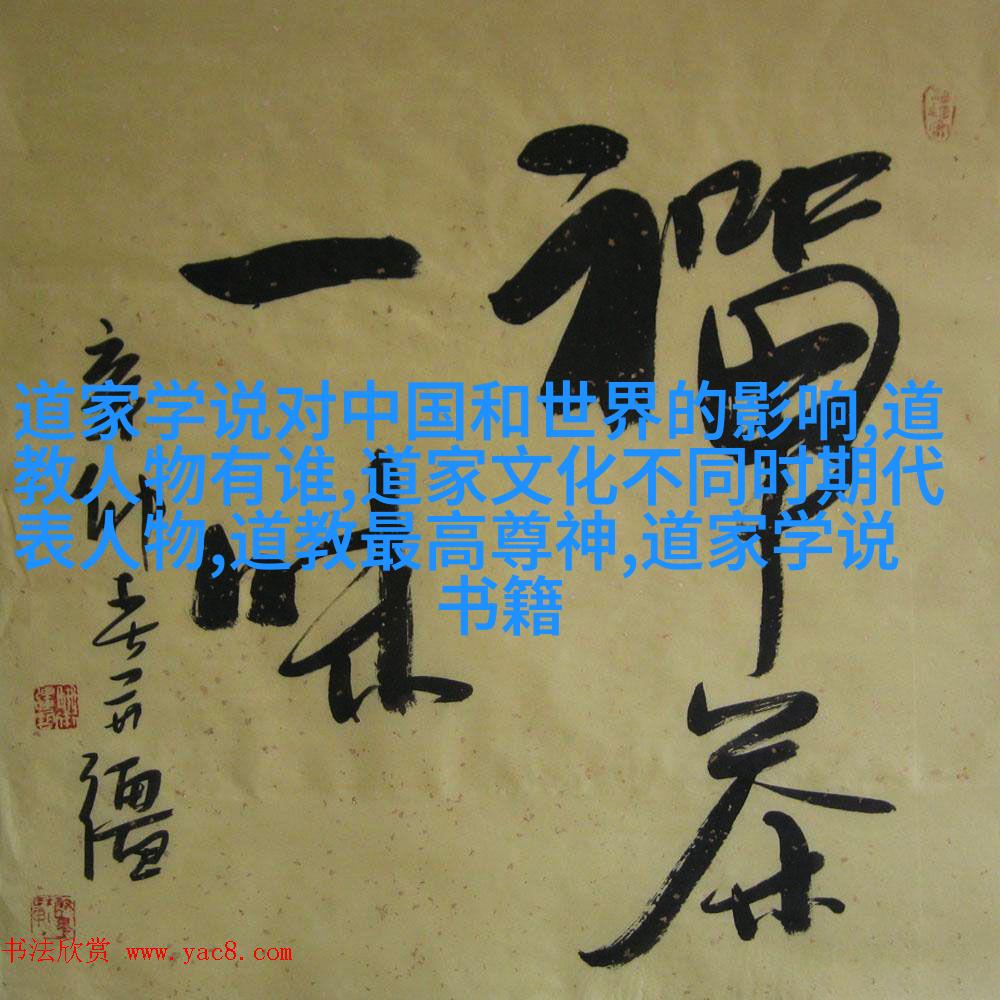 禪茶
一味
道家学说对中国和世界的影响,道
教人物有谁,道家文化不同时期代
表人物,道教最高尊神,道家学说
书籍
书法欣赏 www.yac8.com